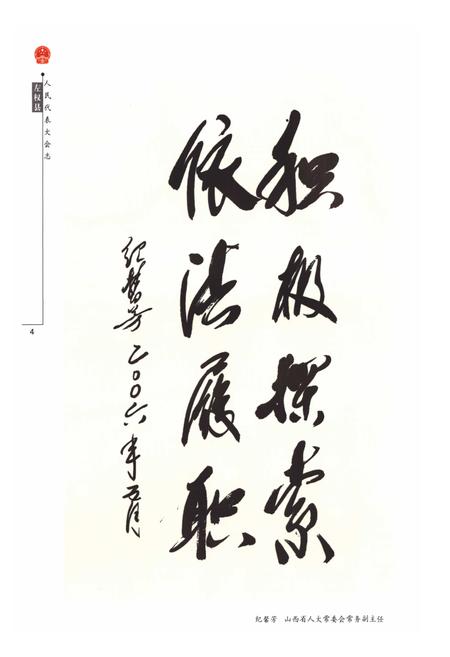 左权县
人民代表大会志
4
积极探索
依法履职
纪馨芳 二〇〇六年五月
纪馨芳 山西省人大常委会常务副主任